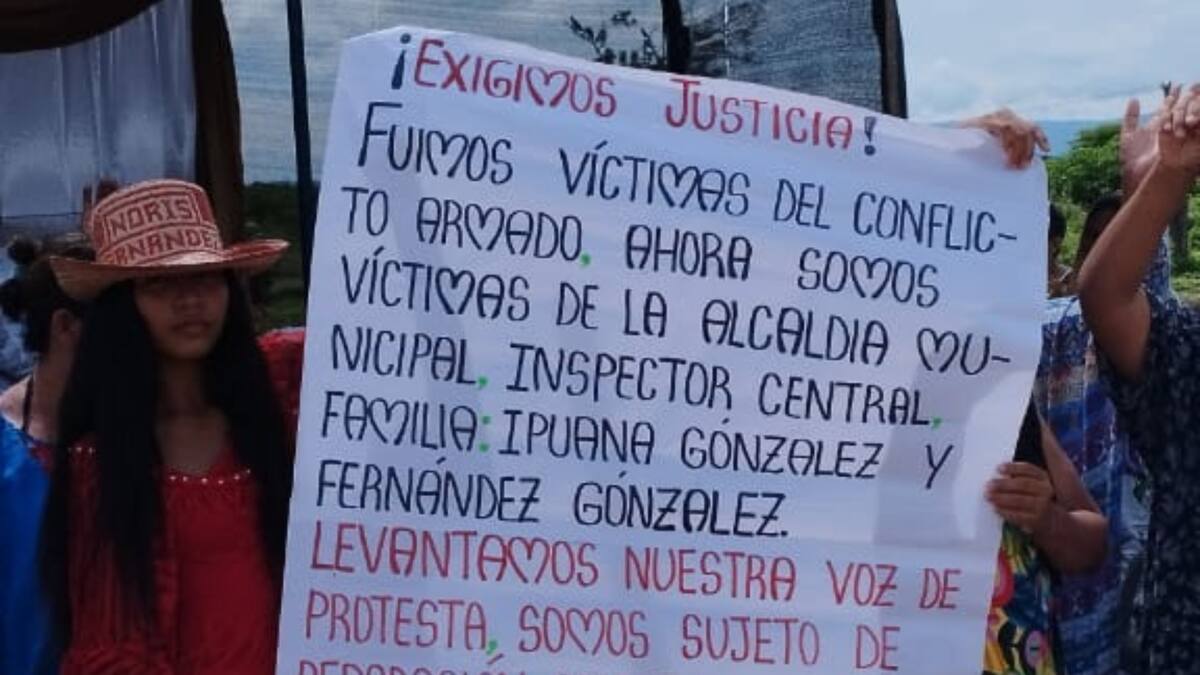 NORIS
FERNANDEZ
¡EXIGIMOS JUSTICIA!
FUIMOS VÍCTIMAS DEL CONFLIC-
TO ARMADO, AHORA SOMOS
VÍCTIMAS DE LA ALCALDIA MU-
NICIPAL, INSPECTOR CENTRAL,
FAMILIA: IPUANA GÓNZALEZ Y
FERNÁNDEZ GÓNZALEZ.
LEVANTAMOS NUESTRA VOZ DE
PROTESTA, SOMOS SUJETO DE
REPARACIÓN